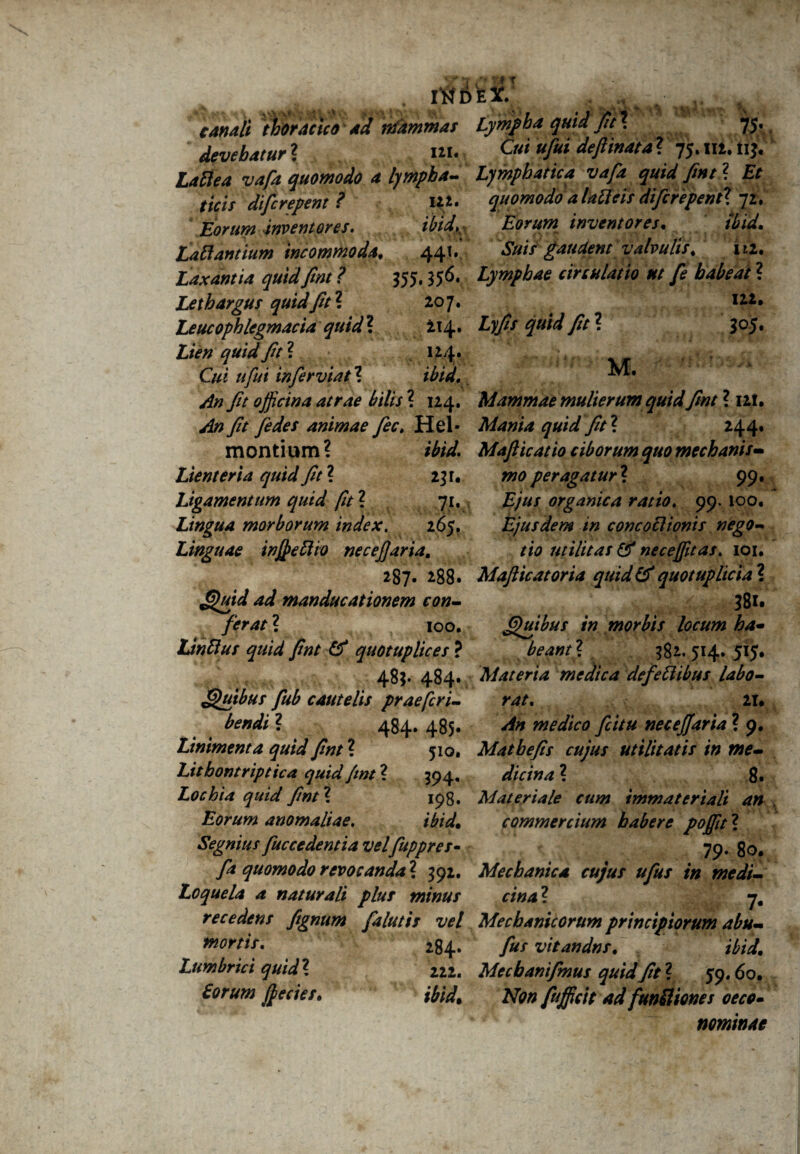 INDEX.
canali thoracico ad mammas
devehatur? 121.
Lactea vaſa quomodo a lympha-
ticis diſcrepent? 122.
Eorum inventores. ibid.
Lactantium incommoda. 441.
Laxantia quid ſint? 355. 356.
Lethargus quid ſit? 207.
Leucophlegmacia quid? 214.
Lien quid ſit? 124.
Cui uſui inſerviat? ibid.
An ſit officina atrae bilis? 124.
An ſit ſedes animae ſec. Hel-
montium? ibid.
Lienteria quid ſit? 231.
Ligamentum quid ſit? 71.
Lingua morborum index. 265.
Linguae inſpectio neceſſaria.
287. 288.
Quid ad manducationem con-
ferat? 100.
Linctus quid ſint & quotuplices?
483. 484.
Quibus ſub cautelis praeſcri-
bendi? 484. 485.
Linimenta quid ſint? 510.
Lithontriptica quid ſint? 394.
Lochia quid ſint? 198.
Eorum anomaliae. ibid.
Segnius ſuccedentia vel ſuppres-
ſa quomodo revocanda? 392.
Loquela a naturali plus minus
recedens ſignum ſalutis vel
mortis. 284.
Lumbrici quid? 222.
Eorum ſpecies. ibid.
Lympha quid ſit? 75.
Cui uſui deſtinata? 75. 112. 113.
Lymphatica vaſa quid ſint? Et
quomodo a lacteis diſcrepent? 72.
Eorum inventores. ibid.
Suis gaudent valvulis. 112.
Lymphae circulatio ut ſe habeat?
122.
Lyſis quid ſit? 305.
M.
Mammae mulierum quid ſint? 121.
Mania quid ſit? 244.
Maſticatio ciborum quo mechanis-
mo peragatur? 99.
Ejus organica ratio. 99. 100.
Ejusdem in concoctionis nego-
tio utilitas & neceſſitas. 101.
Maſticatoria quid & quotuplicia?
381.
Quibus in morbis locum ha-
beant? 382. 514. 515.
Materia medica defectibus labo-
rat. 21.
An medico ſcitu neceſſaria? 9.
Matheſis cujus utilitatis in me-
dicina? 8.
Materiale cum immateriali an
commercium habere poſſit?
79. 80.
Mechanica cujus uſus in medi-
cina? 7.
Mechanicorum principiorum abu-
ſus vitandns. ibid.
Mechaniſmus quid ſit? 59. 60.
Non ſufficit ad functiones oeco-
nominae